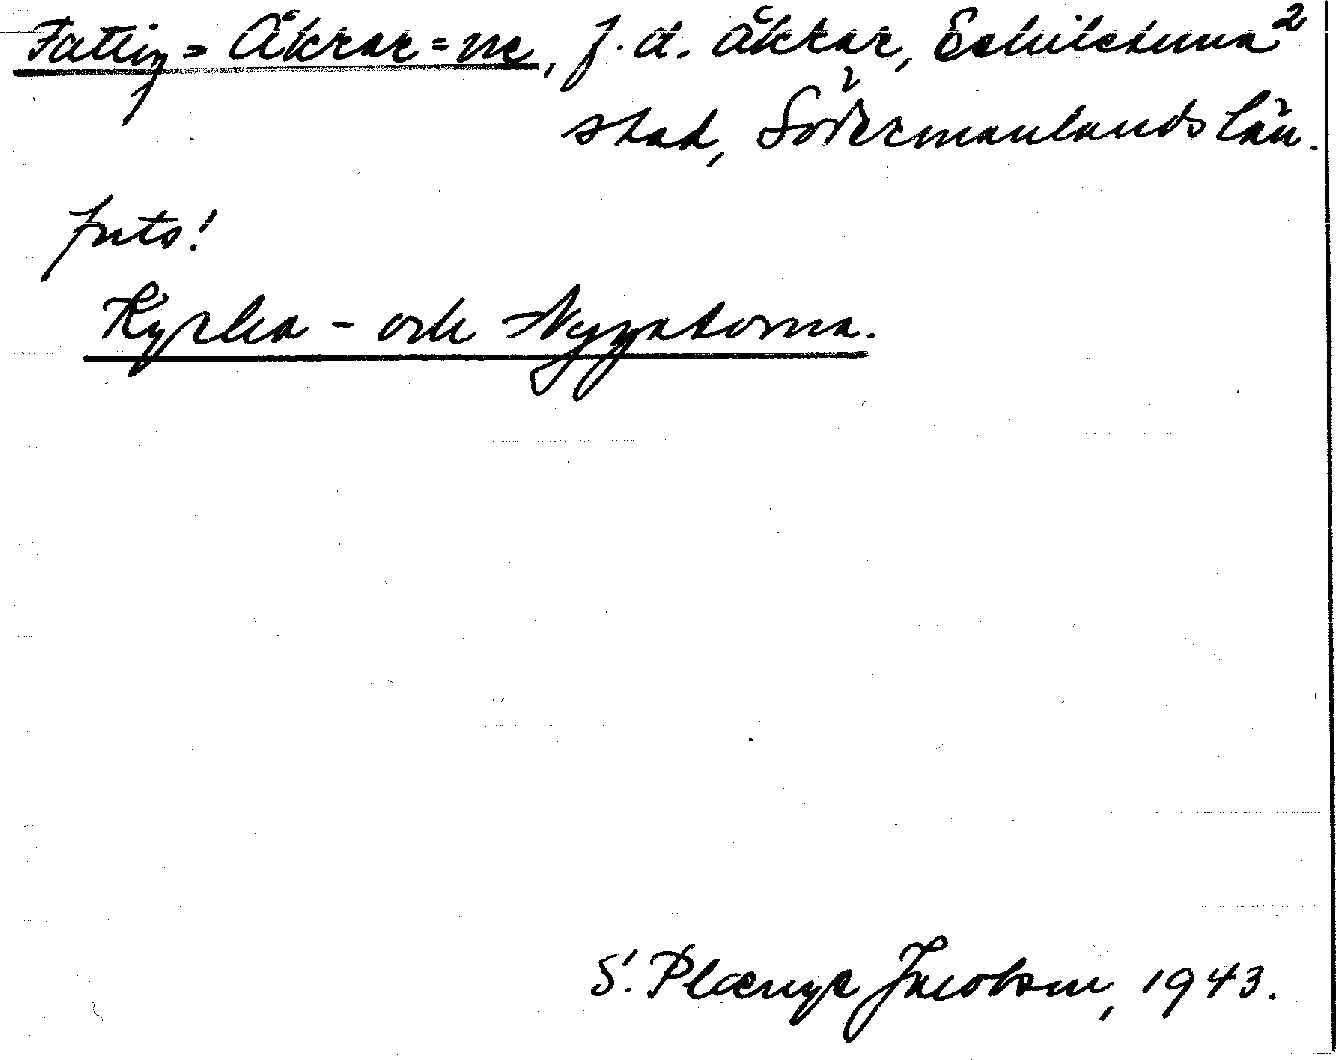 Fattig=Åkrar=ne, f.d. åkrar, Eskilstuna²
stad, Södermanlands län.
juts!
Kyrko- och Nygatorna.
S. Jacobson, 1943.